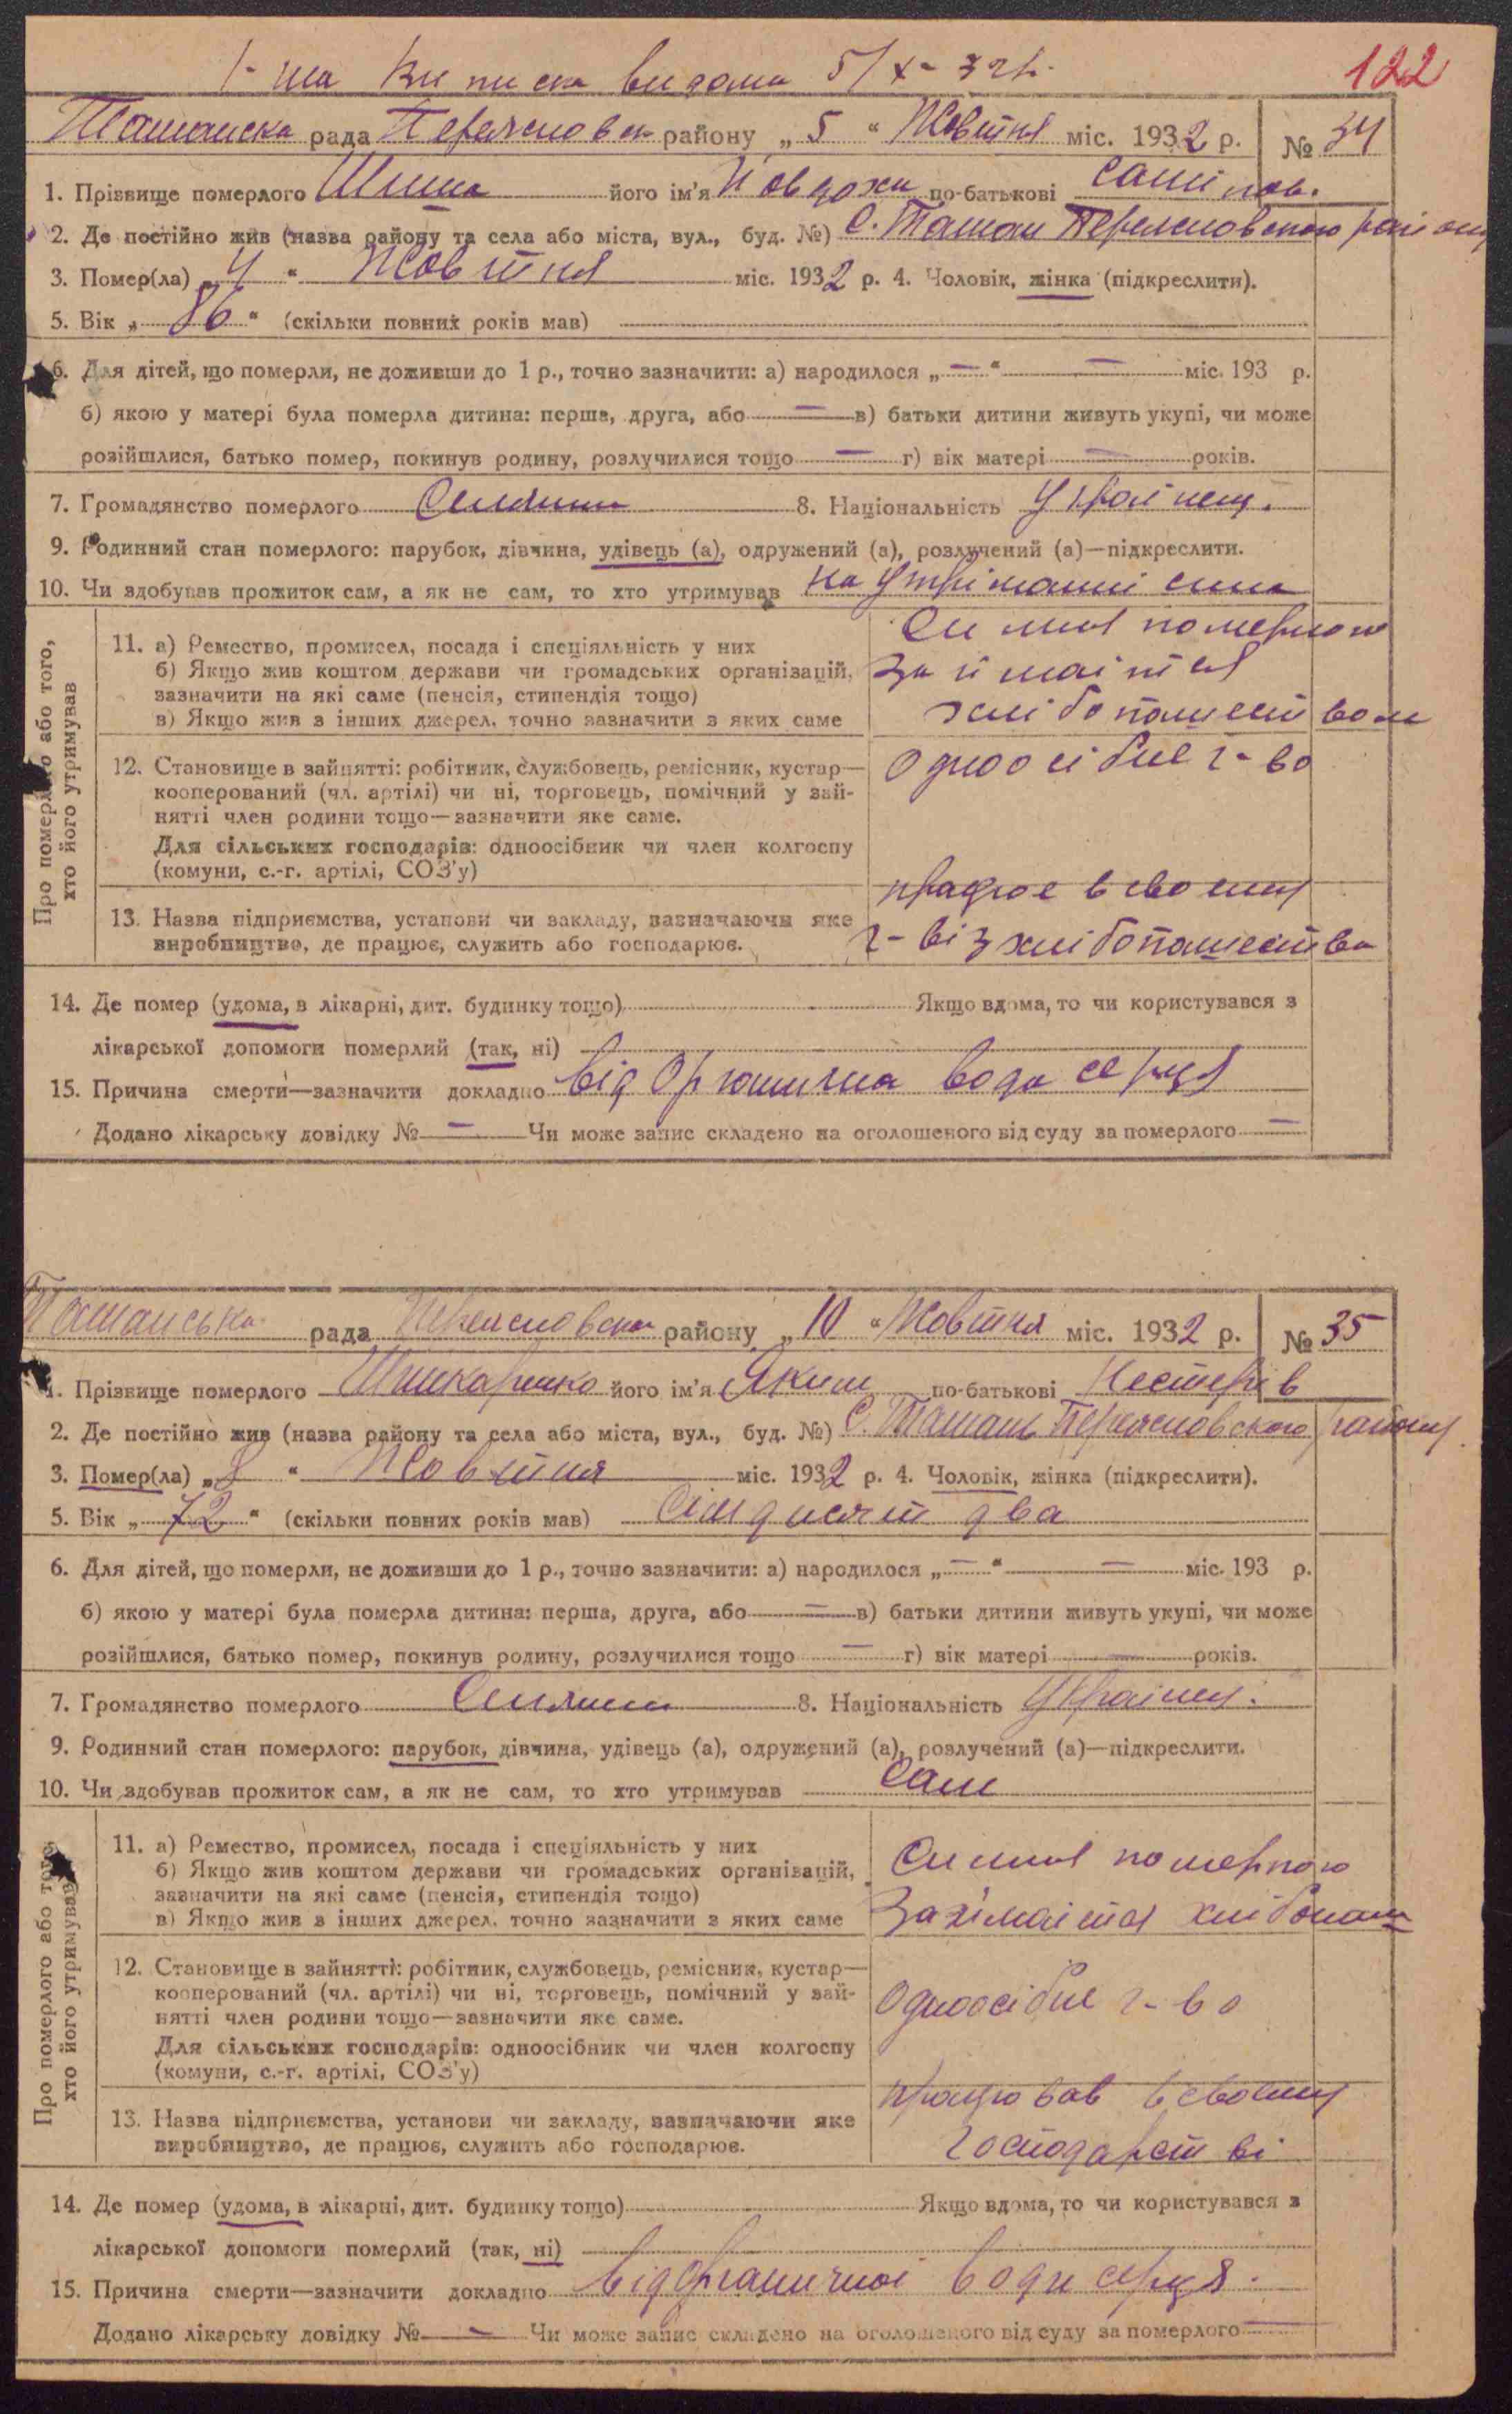 1-ша виписка видана 5/X-32р.
122
Ташанска рада Переяславск району „5“ Жовтня міс. 1932 р. № 34
1. Прізвище померлого його ім'я Повдохи по-батькові
2. Де постійно жив (назва району та села або міста, вул., буд. №) с. Ташань Переяславского району
3. Помер(ла) „4“ Жовтня міс. 1932 р. 4. Чоловік, жінка (підкреслити).
5. Вік „86“ (скільки повних років мав)
6. Для дітей, що померли, не доживши до 1 р., точно зазначити: а) народилося „—“ — міс. 193 р.
б) якою у матері була померла дитина: перша, друга, або — в) батьки дитини живуть укупі, чи може
розійшлися, батько помер, покинув родину, розлучилися тощо — г) вік матері — років.
7. Громадянство померлого Селянин 8. Національність Українец.
9. Родинний стан померлого: парубок, дівчина, удівець (а), одружений (а), розлучений (а)—підкреслити.
10. Чи здобував прожиток сам, а як не сам, то хто утримував на утріманні сина
Про померлого або того, хто його утримував
11. а) Ремество, промисел, посада і спеціяльність у них
б) Якщо жив коштом держави чи громадських організацій,
зазначити на які саме (пенсія, стипендія тощо)
в) Якщо жив з інших джерел, точно зазначити з яких саме
Симия померлого
займаітся
хлібопашеством
12. Становище в зайнятті: робітник, службовець, ремісник, кустар—
кооперований (чл. артілі) чи ні, торговець, помічний у зай-
нятті член родини тощо—зазначити яке саме.
Для сільських господарів: одноосібник чи член колгоспу
(комуни, с.-г. артілі, СОЗ'у)
Одноосібне г-во
13. Назва підприємства, установи чи закладу, зазначаючи яке
виробництво, де працює, служить або господарює.
працює в своему
г-ві з хлібопашества
14. Де помер (удома, в лікарні, дит. будинку тощо) Якщо вдома, то чи користувався з
лікарської допомоги померлий (так, ні)
15. Причина смерти—зазначити докладно від Органична вода серця
Додано лікарську довідку № — Чи може запис складено на оголошеного від суду за померлого —
Ташанська рада Переясловска району „10“ Жовтня міс. 1932 р. № 35
1. Прізвище померлого Шинкаренко його ім'я Яким по-батькові Нестерів
2. Де постійно жив (назва району та села або міста, вул., буд. №) с. Ташань Переясловського району
3. Помер(ла) „8“ Жовтня міс. 1932 р. 4. Чоловік, жінка (підкреслити).
5. Вік „72“ (скільки повних років мав) Сімдисят два
6. Для дітей, що померли, не доживши до 1 р., точно зазначити: а) народилося „—“ — міс. 193 р.
б) якою у матері була померла дитина: перша, друга, або — в) батьки дитини живуть укупі, чи може
розійшлися, батько помер, покинув родину, розлучилися тощо — г) вік матері — років.
7. Громадянство померлого Силянин 8. Національність Українец.
9. Родинний стан померлого: парубок, дівчина, удівець (а), одружений (а), розлучений (а)—підкреслити.
10. Чи здобував прожиток сам, а як не сам, то хто утримував Сам
Про померлого або того, хто його утримував
11. а) Ремество, промисел, посада і спеціяльність у них
б) Якщо жив коштом держави чи громадських організацій,
зазначити на які саме (пенсія, стипендія тощо)
в) Якщо жив з інших джерел, точно зазначити з яких саме
Симия померлого
Займаітся хлібопаш
12. Становище в зайнятті: робітник, службовець, ремісник, кустар—
кооперований (чл. артілі) чи ні, торговець, помічний у зай-
нятті член родини тощо—зазначити яке саме.
Для сільських господарів: одноосібник чи член колгоспу
(комуни, с.-г. артілі, СОЗ'у)
Одноосібне г-во
13. Назва підприємства, установи чи закладу, зазначаючи яке
виробництво, де працює, служить або господарює.
працював в своему
господарстві
14. Де помер (удома, в лікарні, дит. будинку тощо) Якщо вдома, то чи користувався з
лікарської допомоги померлий (так, ні)
15. Причина смерти—зазначити докладно від Органичноі води серця.
Додано лікарську довідку № — Чи може запис складено на оголошеного від суду за померлого —